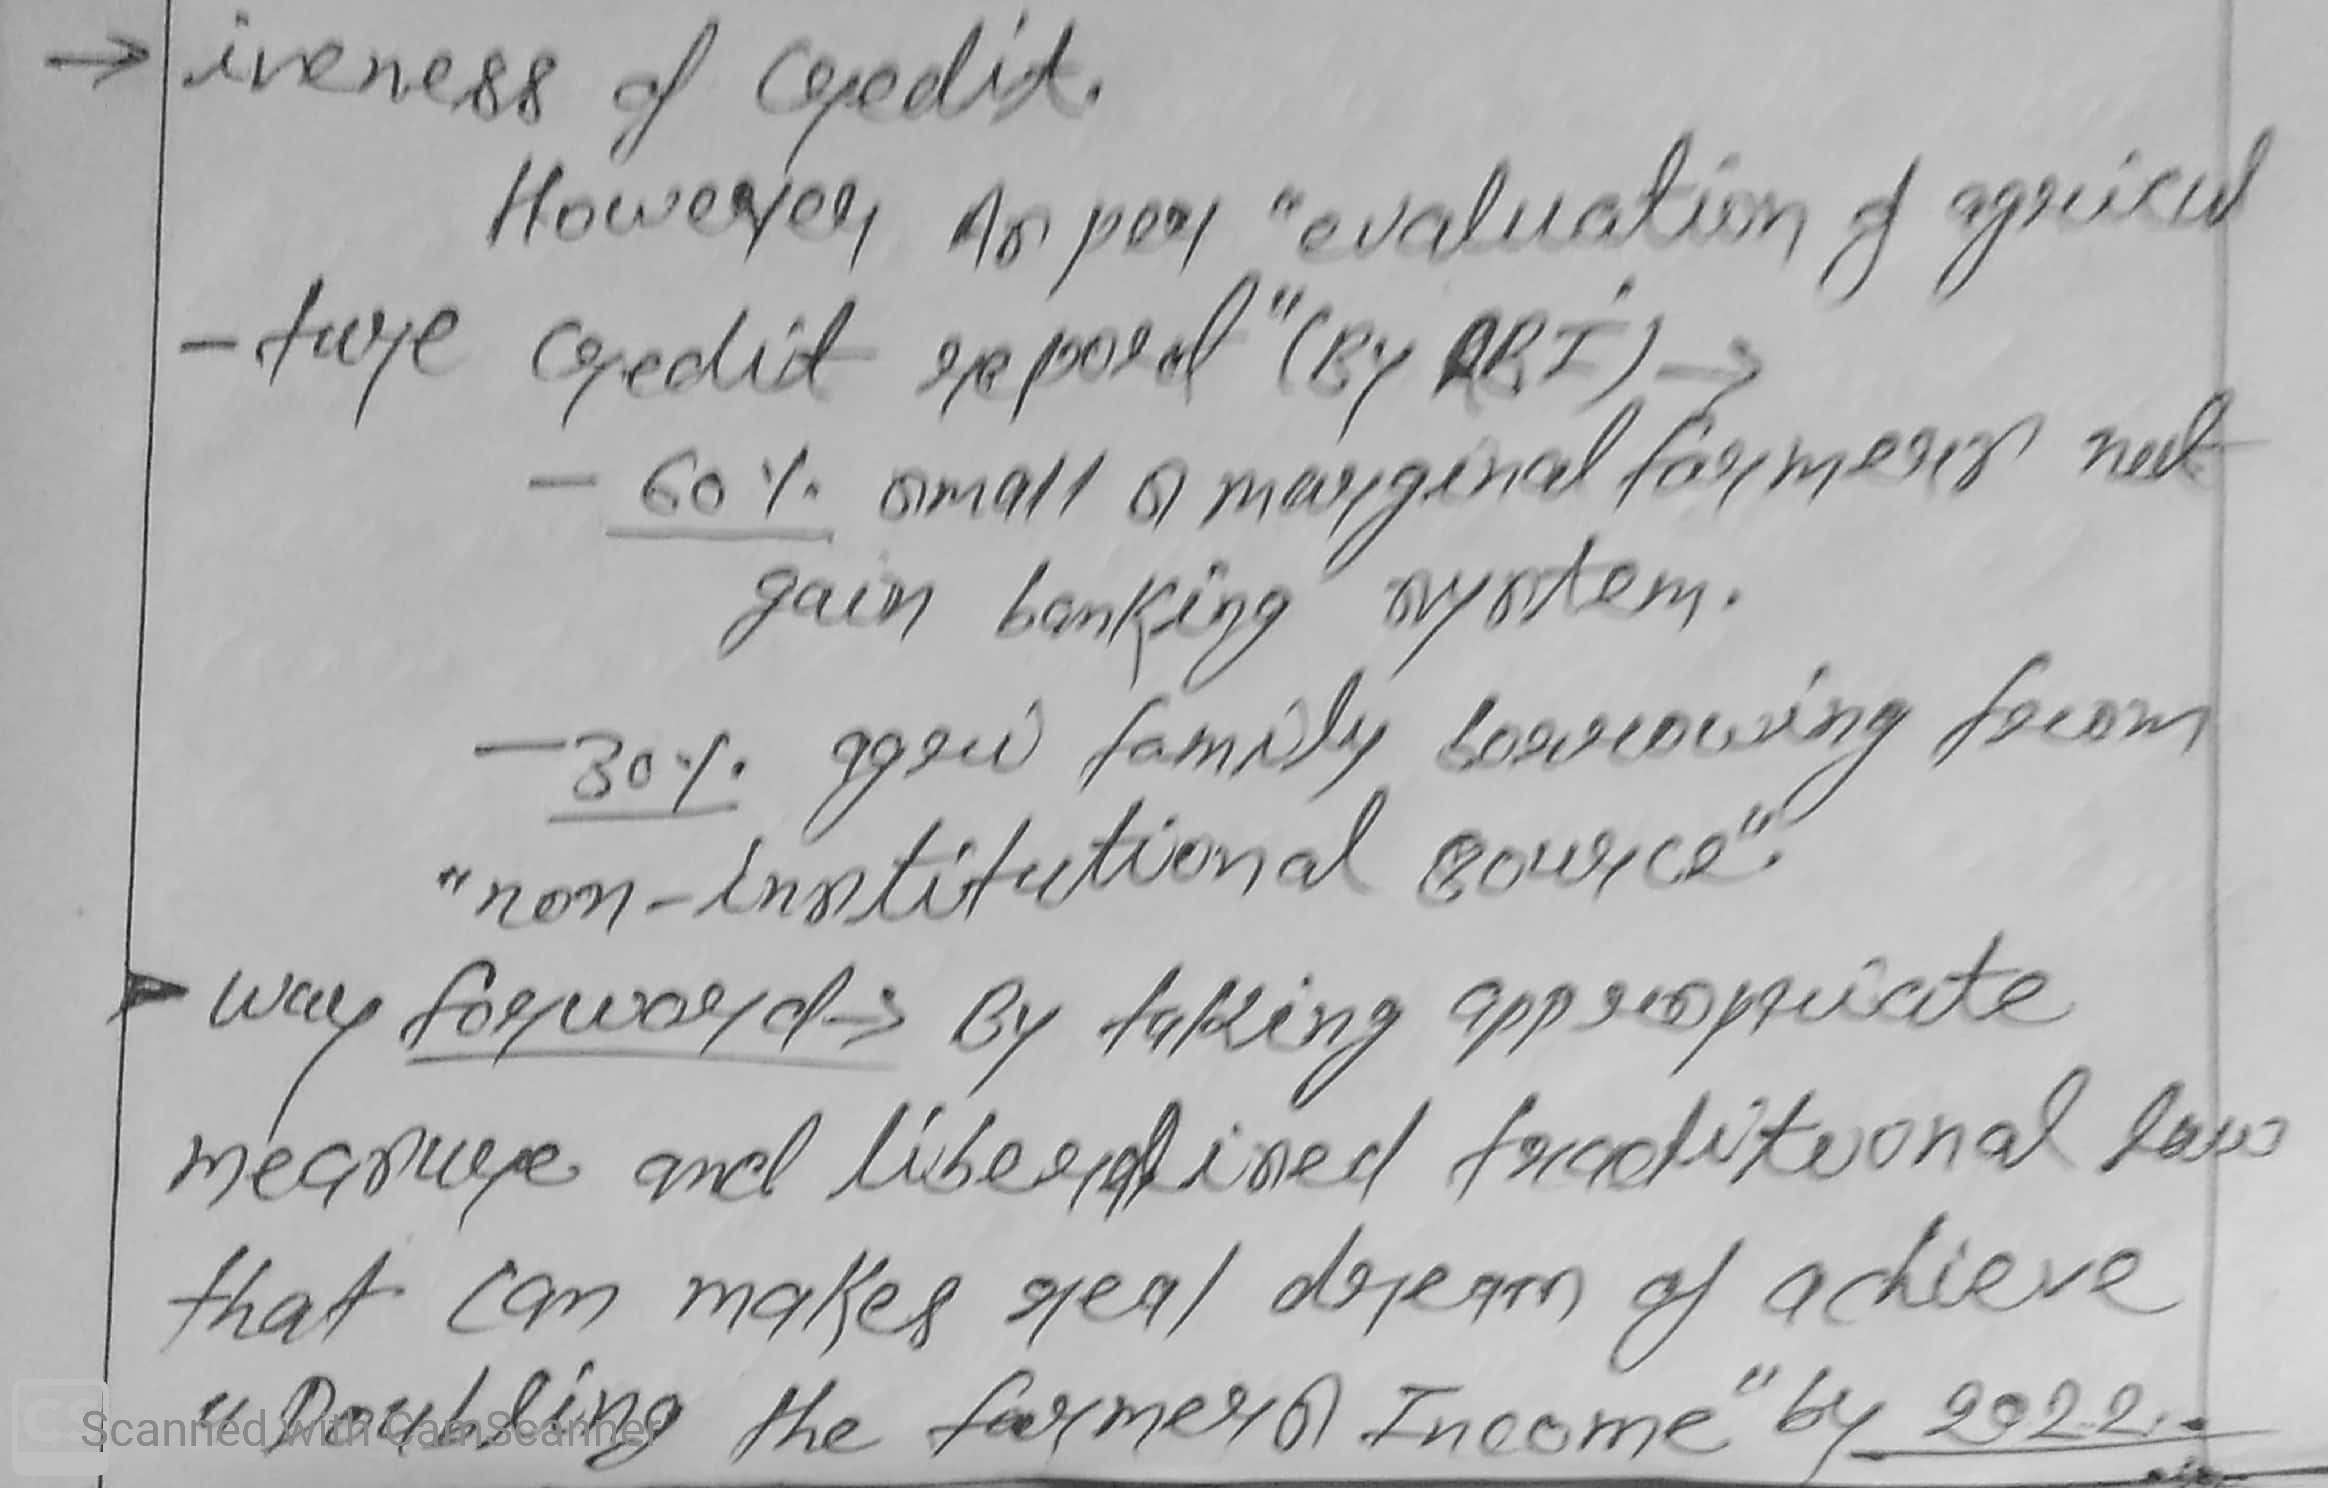 → iveness of credit.
However, As per "evaluation of agricul
- ture credit report" (By RBI) →
- 60% small & marginal farmers not
gain banking system.
- 30% agri family borrowing from
"non-institutional source".
▶ way forward → By taking appropriate
measure and liberalised traditional law
that can makes real dream of achieve
"Doubling the farmers Income" by 2022.
Scanned with CamScanner